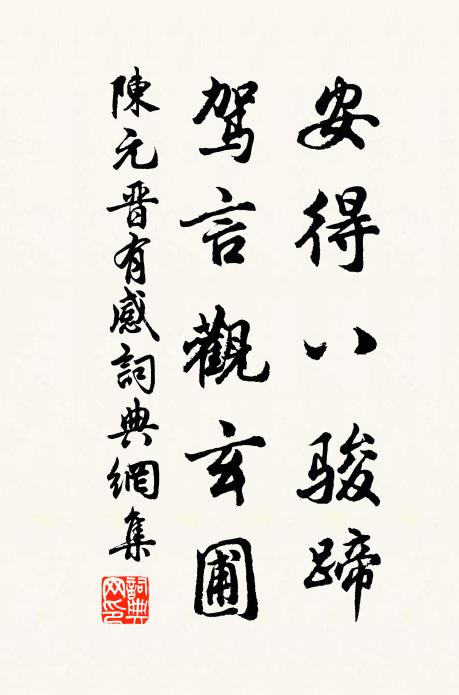 安得八骏蹄
驾言觀玄圃
陳元晋有感詞典網集
詞典網印